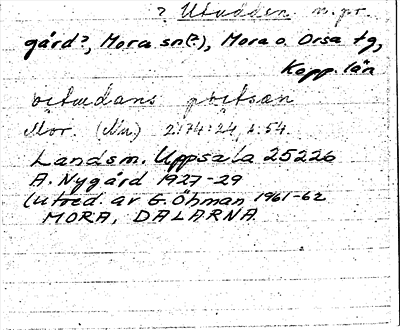 ? Utudden n. pr
gård?, Mora sn(?), Mora o. Orsa tg,
Kopp. län
Mor. (Nu.) 2:74:24, 1:54.
Landsm. Uppsala 25226
A. Nygård 1927-29
(Utred. av G. Öhman 1961-62
MORA, DALARNA.